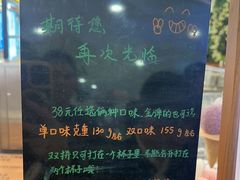 期待您
再次光临
38元任选两种口味，金牌的也可选
单口味克重130g左右 双口味155g左右
双拼只可打在一个杯子里 不能分开打在
两个杯子哦！